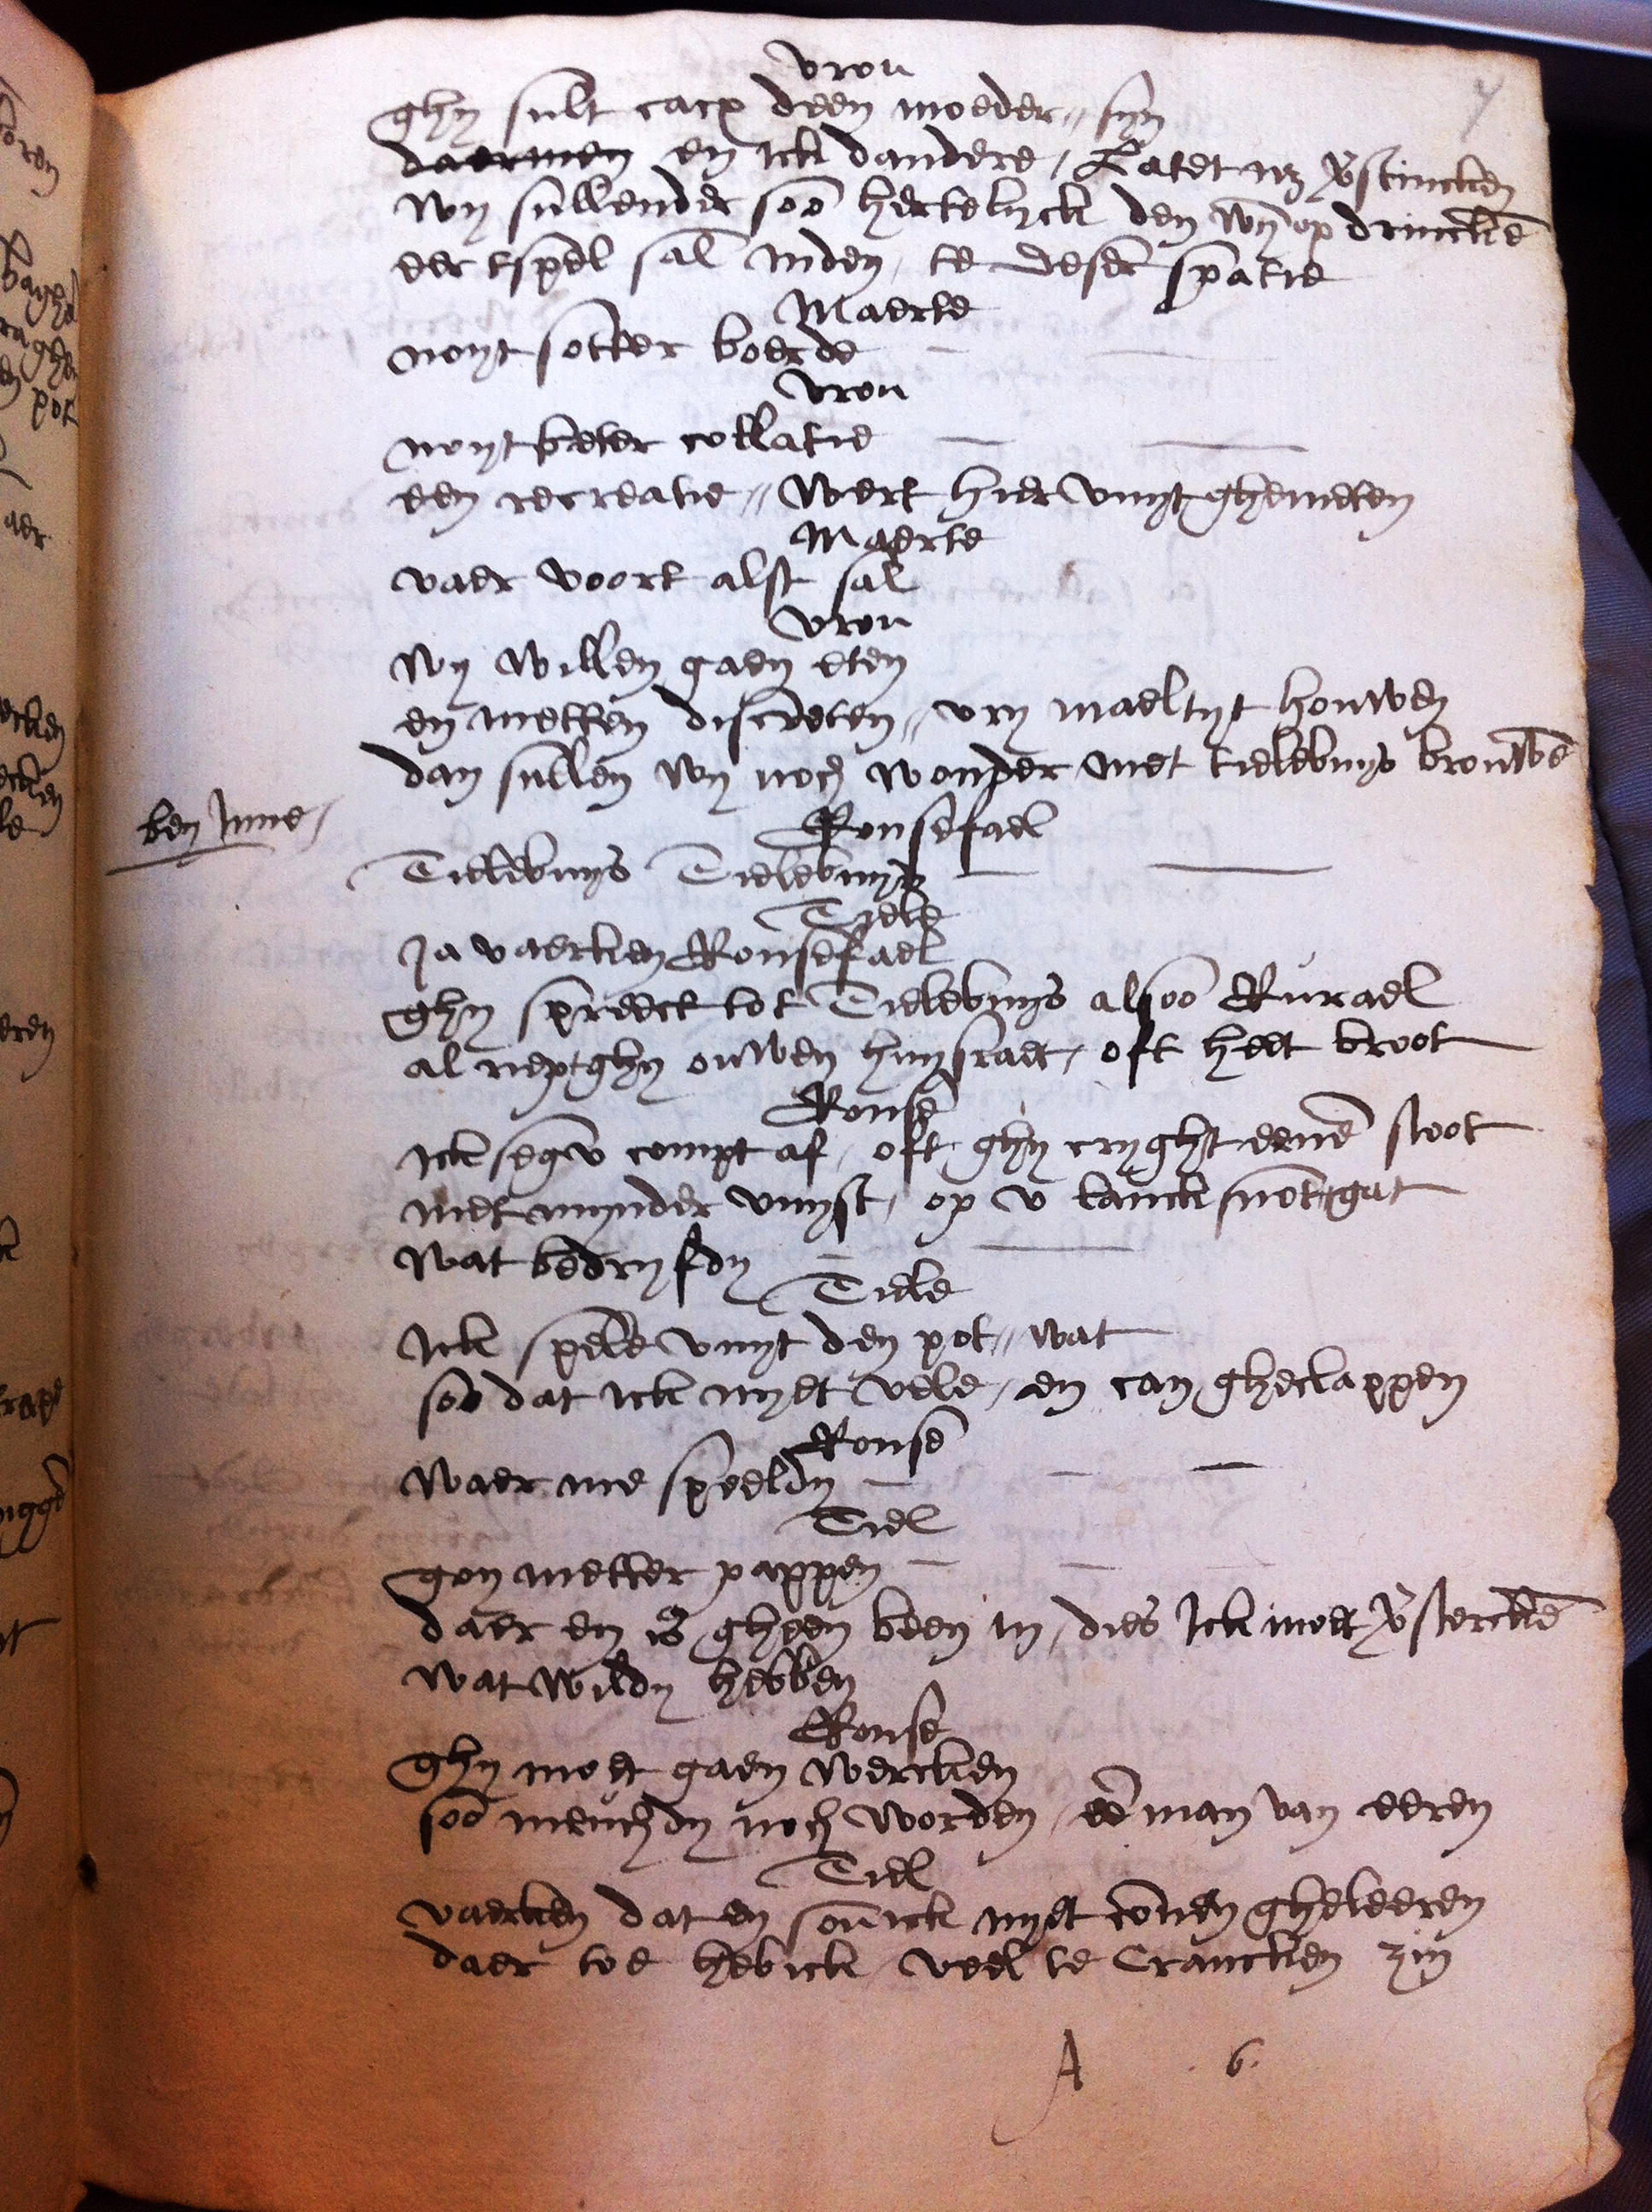 7
vrou
ghy sult cacx deen moeder // syn
daermen en ick dandere / Latet nz v̄stincken
wy sullender soo hertelyck den wyn op drinckē
eer tspel sal inden / te deser spatie
Maerte
noyt sotter boerde
vrou
noyt beter collatie
een recreatie // wert hier vuyt ghemeten
Maerte
vaer voort alst sal
vrou
wy willen gaen eten
en metten discreten // vry maeltyt houwen
dan sullen wy noch wonder met tielebuys brouwē
ben Inne /
Ronsefael
Tielebuys Tielebuys
Tiele
Ja vaerken Ronsefael
ghy spreect tot Tielebuys alsoo Rurael
al riept ghy ouwen huysraet / oft heet broot
Ronse
ick segu compt af / oft ghy cryght eenē stoot
met mynder vuyst / op v lanck snotgat
wat bedryfdy
Tiele
Ick spele vuyt den pot // wat
soo dat ick nyet vele / en can gheclappen
Ronse
waer me speeldy
Tiel
gon metter pappen
daer en is gheen been in / dies Ick moet v̄sterckē
wat wildy hebben
Ronse
ghy moet gaen wercken
soo meuchdy noch worden / eē man van eeren
Tiel
vaerken dat en souick nyet connen gheleeren
daer toe hebick veel te Crancken zin
A 6.